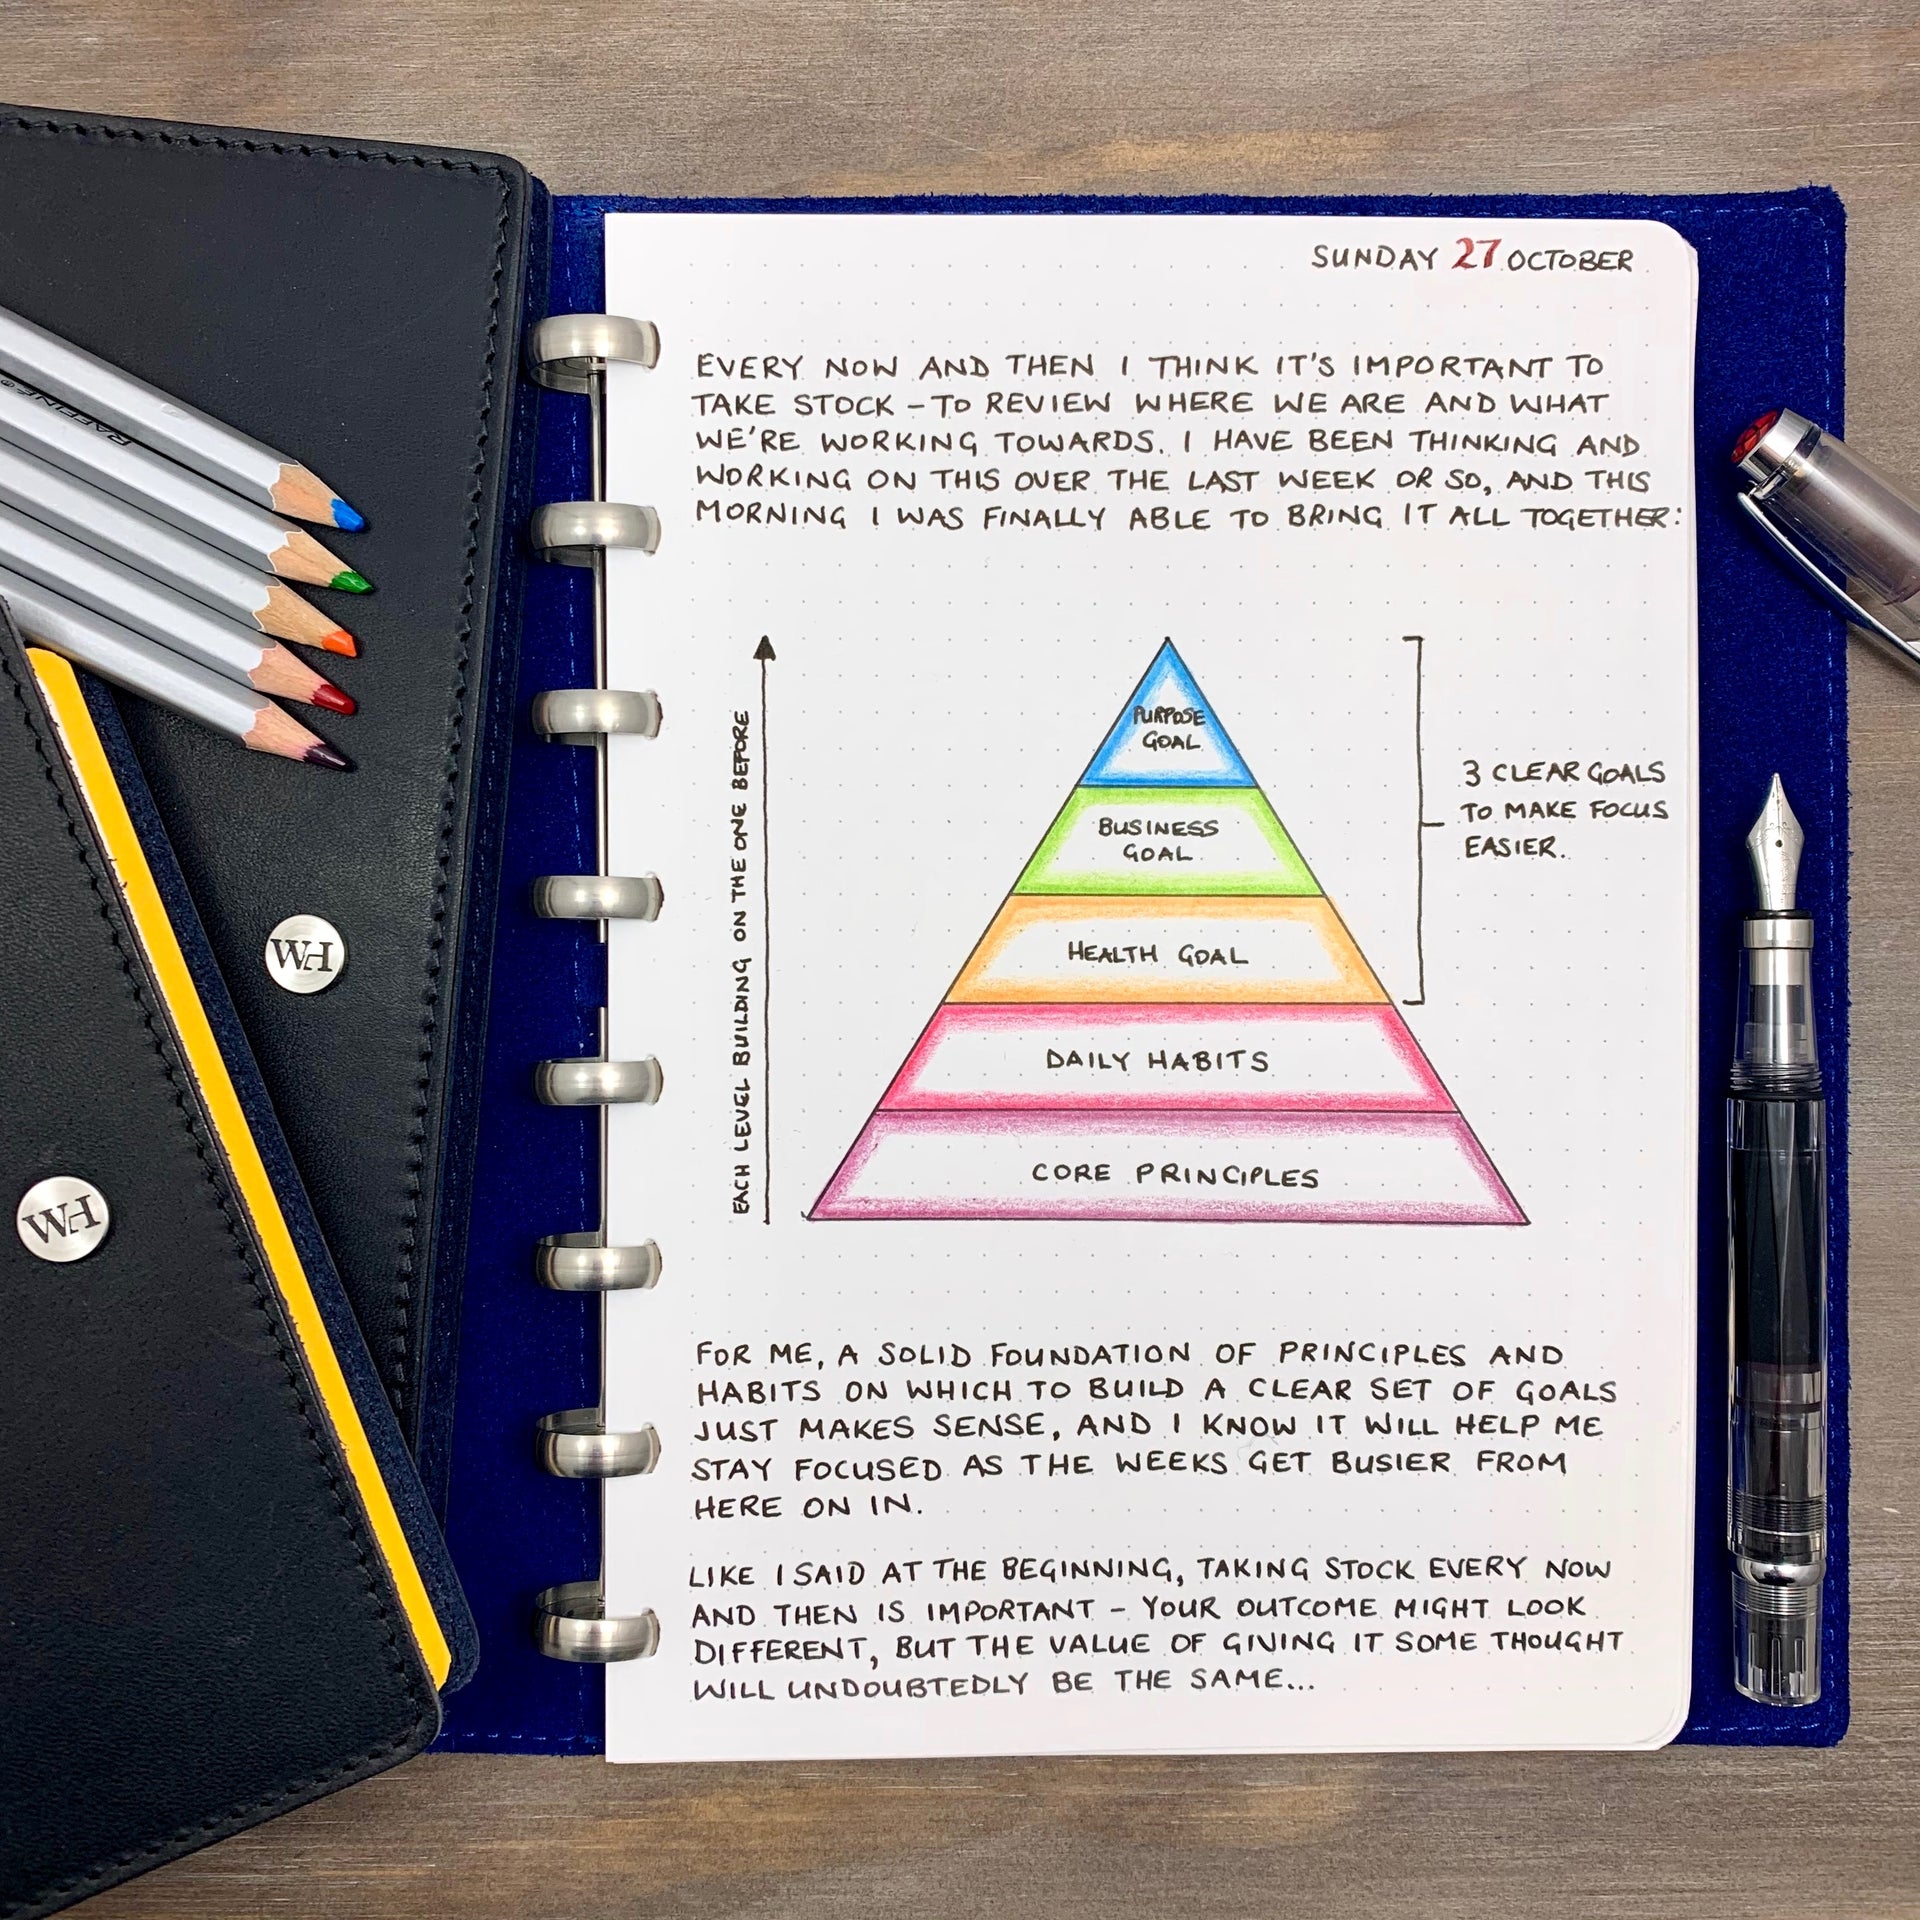 SUNDAY 27 OCTOBER
EVERY NOW AND THEN I THINK IT'S IMPORTANT TO
TAKE STOCK – TO REVIEW WHERE WE ARE AND WHAT
WE'RE WORKING TOWARDS. I HAVE BEEN THINKING AND
WORKING ON THIS OVER THE LAST WEEK OR SO, AND THIS
MORNING I WAS FINALLY ABLE TO BRING IT ALL TOGETHER:
EACH LEVEL BUILDING ON THE ONE BEFORE
PURPOSE
GOAL
BUSINESS
GOAL
HEALTH GOAL
DAILY HABITS
CORE PRINCIPLES
3 CLEAR GOALS
TO MAKE FOCUS
EASIER.
FOR ME, A SOLID FOUNDATION OF PRINCIPLES AND
HABITS ON WHICH TO BUILD A CLEAR SET OF GOALS
JUST MAKES SENSE, AND I KNOW IT WILL HELP ME
STAY FOCUSED AS THE WEEKS GET BUSIER FROM
HERE ON IN.
LIKE I SAID AT THE BEGINNING, TAKING STOCK EVERY NOW
AND THEN IS IMPORTANT – YOUR OUTCOME MIGHT LOOK
DIFFERENT, BUT THE VALUE OF GIVING IT SOME THOUGHT
WILL UNDOUBTEDLY BE THE SAME...
RAFFINÉ®
WH
WH